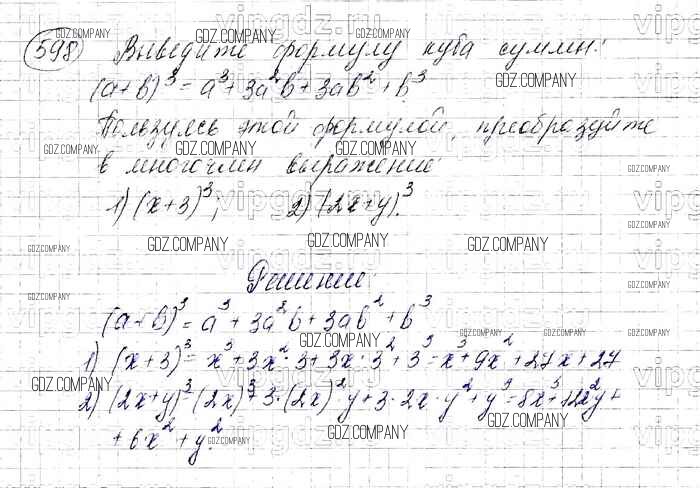 598 Выведите формулу куба суммы:
(a+b)³ = a³ + 3a²b + 3ab² + b³
Пользуясь этой формулой, преобразуйте
в многочлен выражение
1) (x+3)³; 2) (2x+y)³.
Решение
(a+b)³ = a³ + 3a²b + 3ab² + b³
1) (x+3)³ = x³ + 3x²·3 + 3x·3² + 3³ = x³ + 9x² + 27x + 27
2) (2x+y)³ (2x)³ + 3·(2x)²y + 3·2x·y² + y³ = 8x³ + 12x²y +
+ 6x² + y².
GDZ.COMPANY
vipgdz.ru